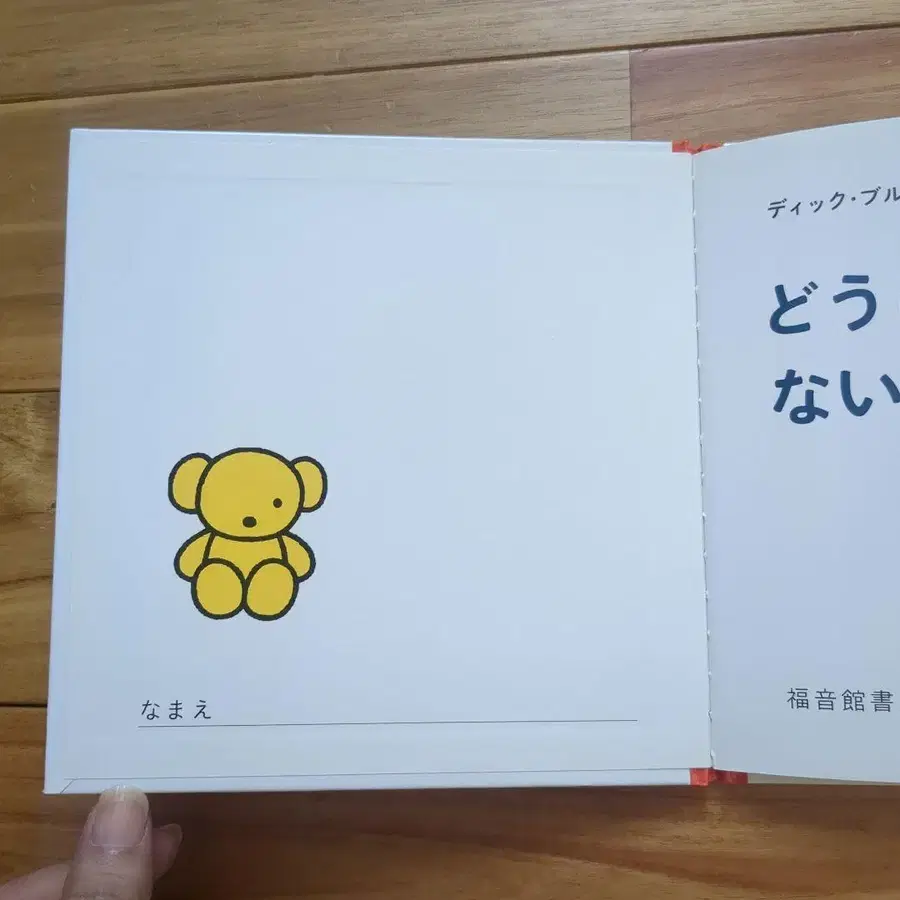 なまえ
ディック・ブル
どう
ない
福音館書